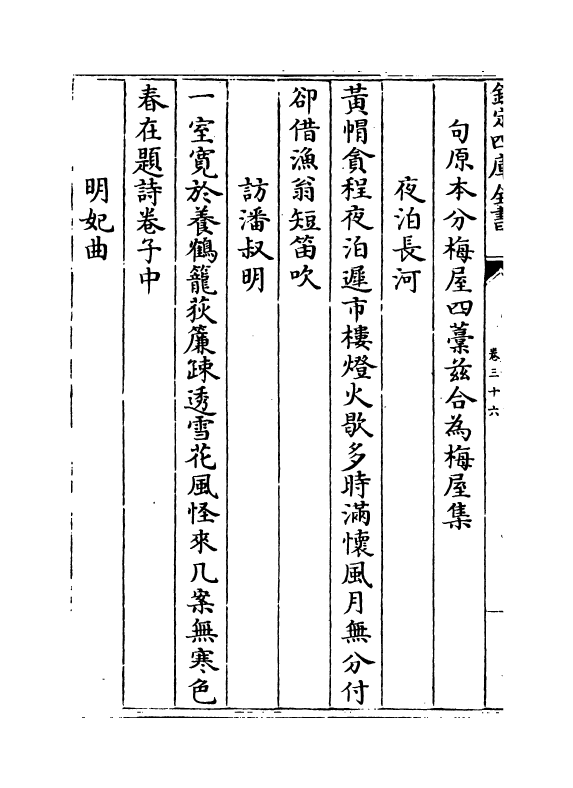 欽定四庫全書
卷三十六
句原本分梅屋四藁兹合為梅屋集
夜泊長河
黃帽貪程夜泊遲市樓燈火歇多時滿懷風月無分付
卻借漁翁短笛吹
訪潘叔明
一室寛於養鶴籠荻簾疎透雪花風怪來几案無寒色
春在題詩卷子中
明妃曲